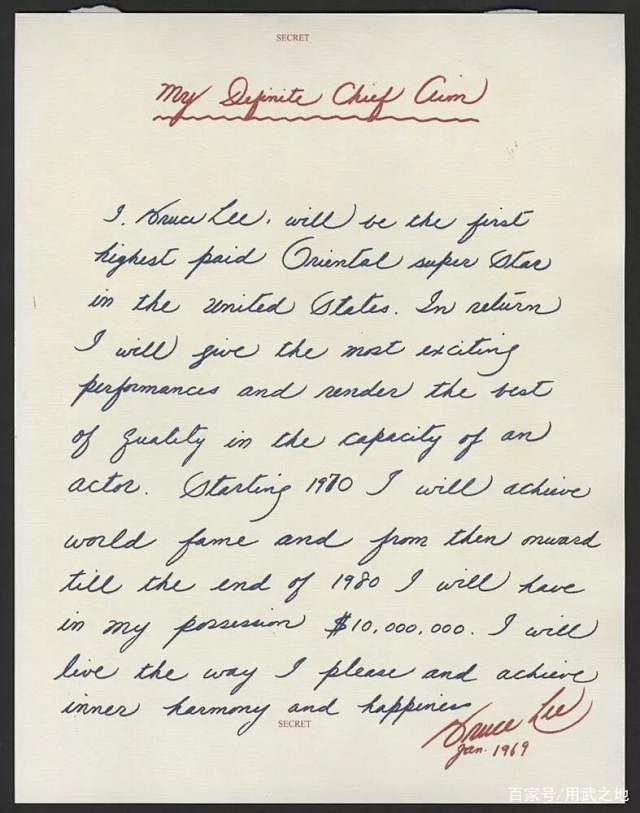 SECRET
My Definite Chief Aim
I, Bruce Lee, will be the first
highest paid Oriental super star
in the United States. In return
I will give the most exciting
performances and render the best
of quality in the capacity of an
actor. Starting 1970 I will achieve
world fame and from then onward
till the end of 1980 I will have
in my possession $10,000,000. I will
live the way I please and achieve
inner harmony and happiness
SECRET
Bruce Lee
Jan. 1969
百家号/用武之地